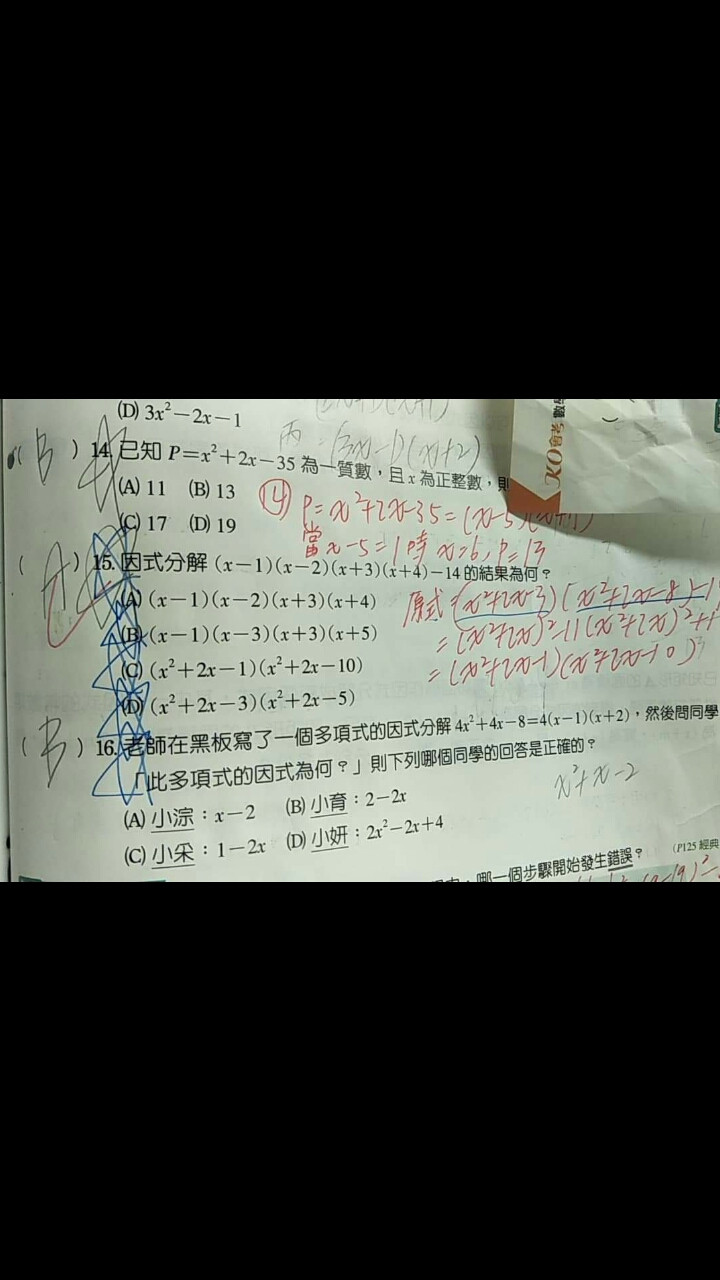 (D) 3x²－2x－1
丙 = (3x-1)(x+2)
( B ) 14. 已知 P＝x²＋2x－35 為一質數，且 x 為正整數，則
(A) 11 (B) 13
(C) 17 (D) 19
⑭ P = x²+2x-35 = (x-5)(x+7)
當 x-5=1 時 x=6, P=13
( ) 15. 因式分解 (x－1)(x－2)(x＋3)(x＋4)－14 的結果為何？
(A) (x－1)(x－2)(x＋3)(x＋4)
(B) (x－1)(x－3)(x＋3)(x＋5)
(C) (x²＋2x－1)(x²＋2x－10)
(D) (x²＋2x－3)(x²＋2x－5)
原式 = (x²+2x-3)(x²+2x-8)-1
= (x²+2x)²-11(x²+2x)²+
= (x²+2x-1)(x²+2x-10)
( B ) 16. 老師在黑板寫了一個多項式的因式分解 4x²＋4x－8＝4(x－1)(x＋2)，然後問同學
「此多項式的因式為何？」則下列哪個同學的回答是正確的？
x²+x-2
(A) 小淙：x－2 (B) 小育：2－2x
(C) 小采：1－2x (D) 小妍：2x²－2x＋4
(P125 經典
哪一個步驟開始發生錯誤？
KO 會考 數學